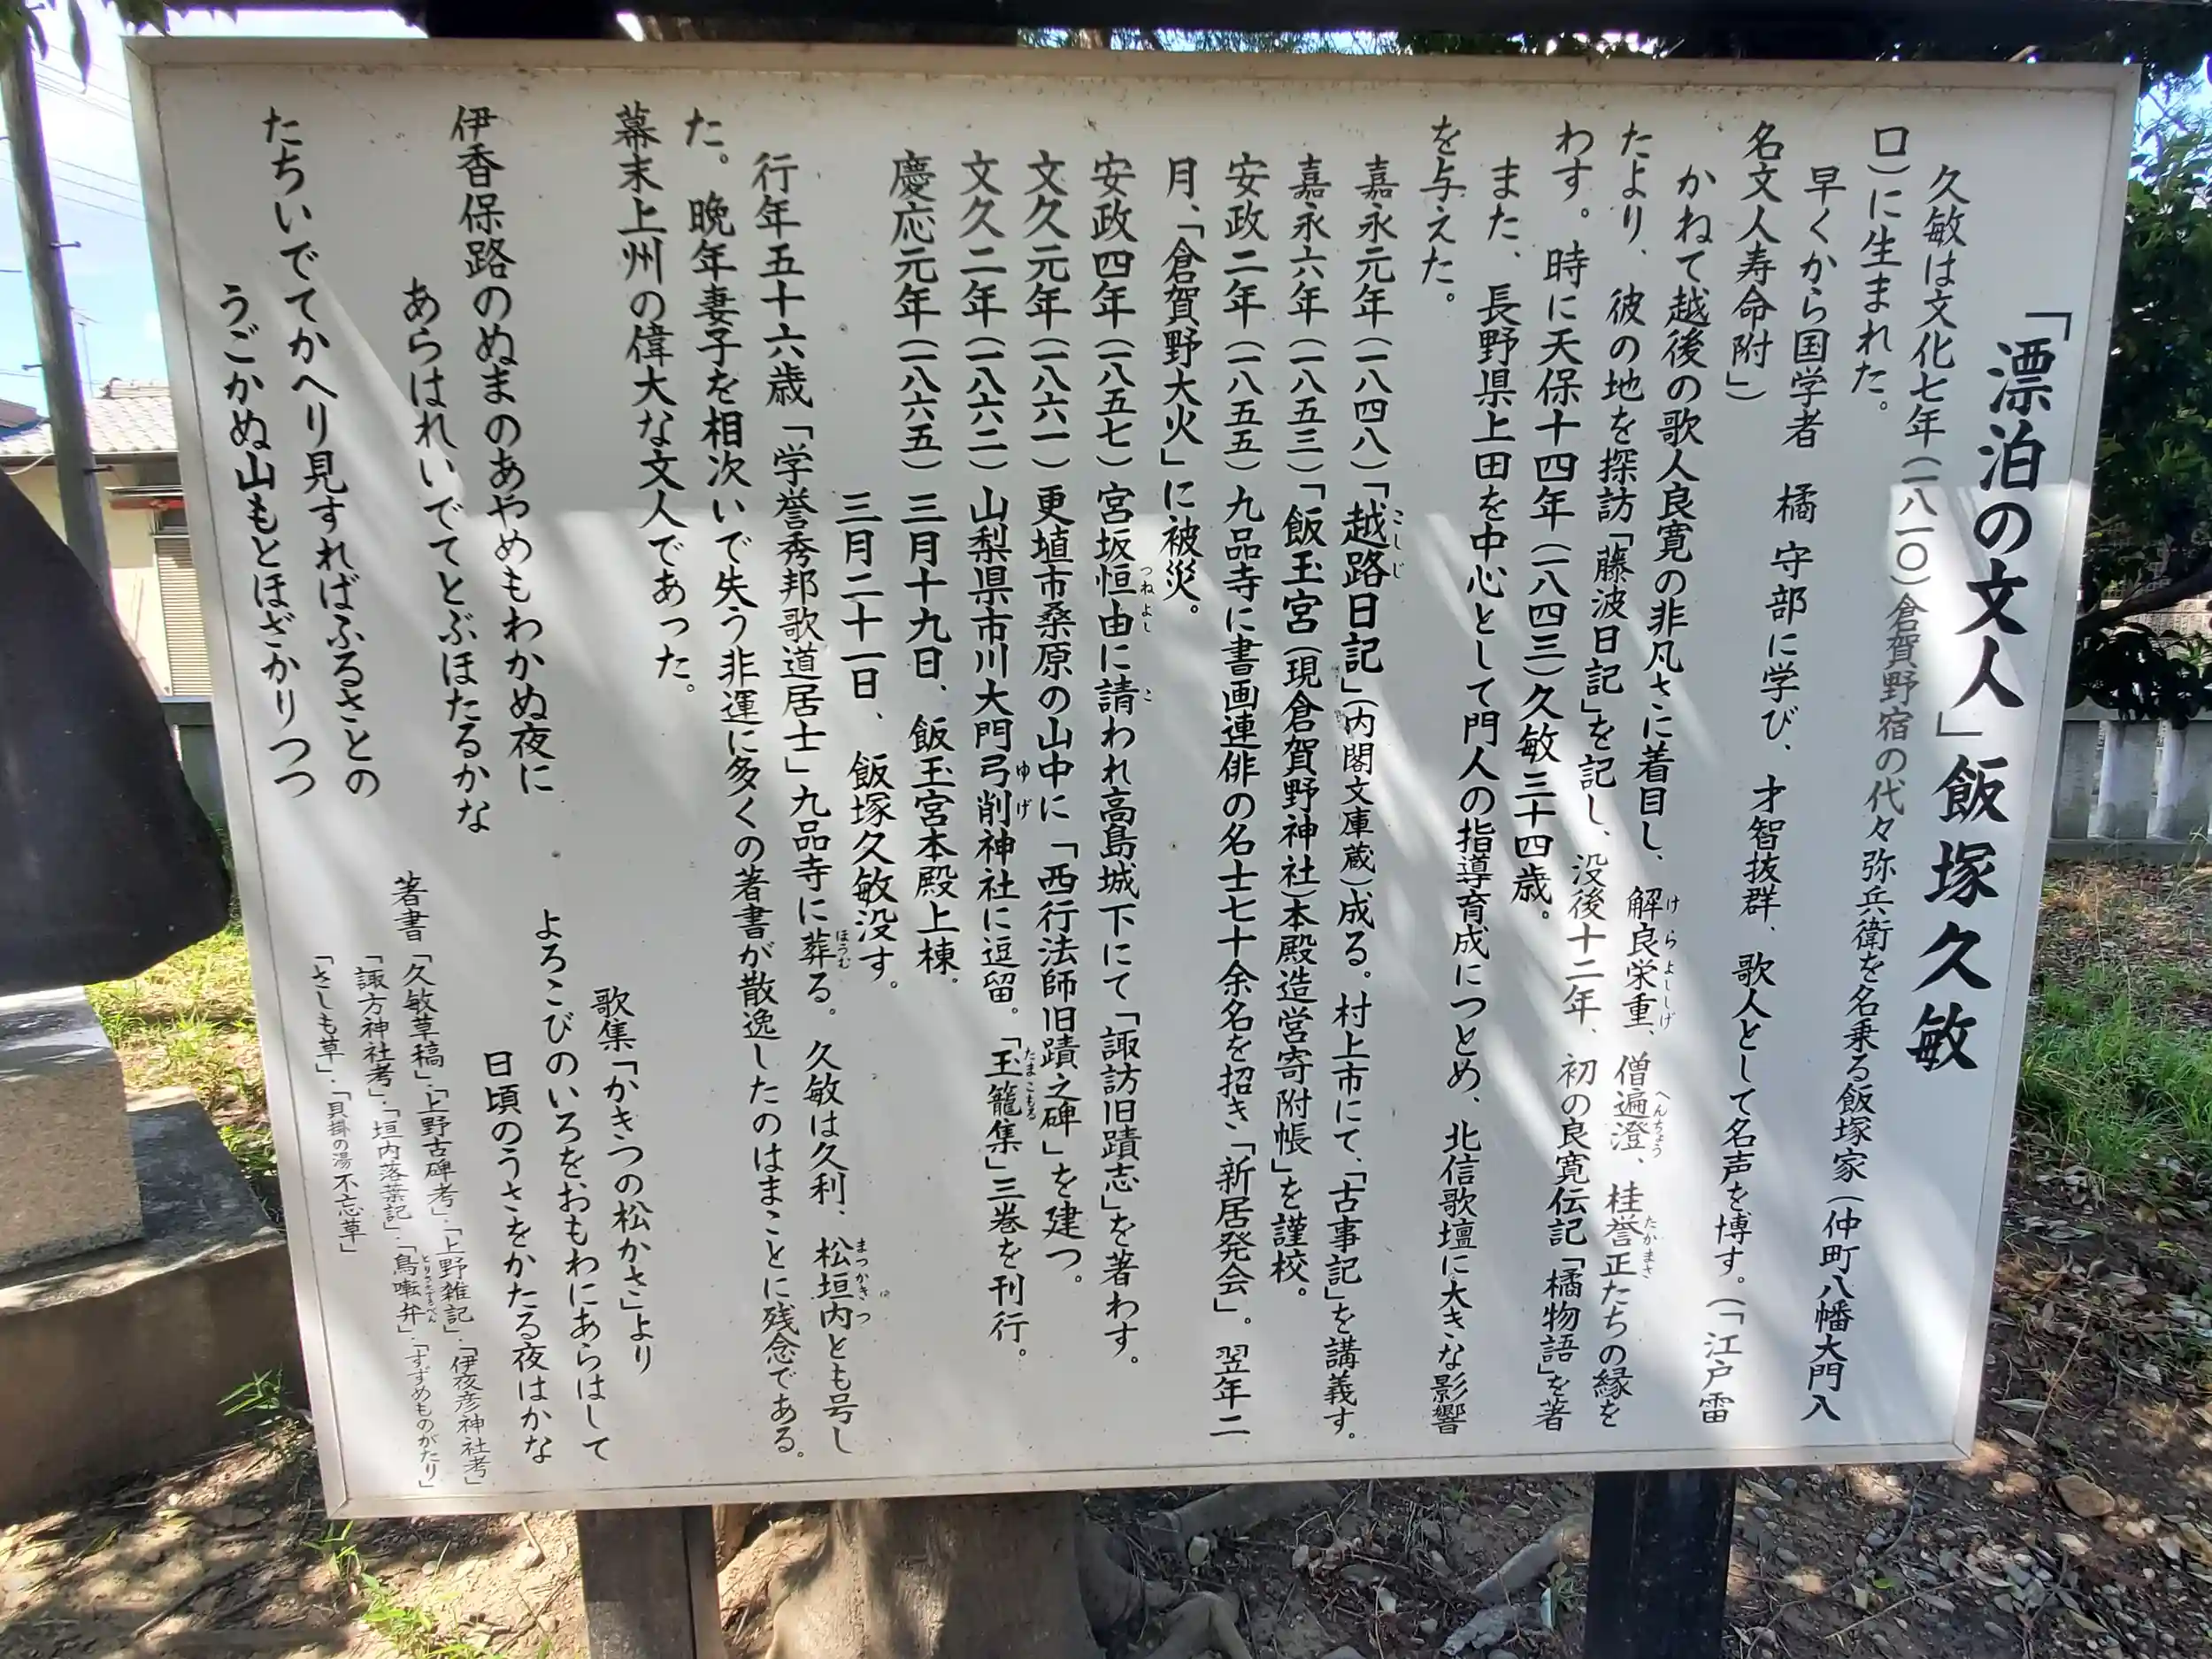 「漂泊の文人」飯塚久敏
久敏は文化七年（一八一〇）倉賀野宿の代々弥兵衛を名乗る飯塚家（仲町八幡大門入
口）に生まれた。
早くから国学者 橘 守部に学び、才智抜群、歌人として名声を博す。（「江戸雷
名文人寿命附」）
かねて越後の歌人良寛の非凡さに着目し、解良栄重、僧遍澄、桂誉正たちの縁を
けらよししげ へんちょう たかまさ
たより、彼の地を探訪「藤波日記」を記し、没後十二年、初の良寛伝記「橘物語」を著
わす。時に天保十四年（一八四三）久敏三十四歳。
また、長野県上田を中心として門人の指導育成につとめ、北信歌壇に大きな影響
を与えた。
嘉永元年（一八四八）「越路日記」（内閣文庫蔵）成る。村上市にて、「古事記」を講義す。
こしじ
嘉永六年（一八五三）「飯玉宮（現倉賀野神社）本殿造営寄附帳」を謹校。
安政二年（一八五五）九品寺に書画連俳の名士七十余名を招き「新居発会」。翌年二
月、「倉賀野大火」に被災。
安政四年（一八五七）宮坂恒由に請われ高島城下にて「諏訪旧蹟志」を著わす。
つねよし こ
文久元年（一八六一）更埴市桑原の山中に「西行法師旧蹟之碑」を建つ。
文久二年（一八六二）山梨県市川大門弓削神社に逗留。「玉籠集」三巻を刊行。
ゆげ たまこもる
慶応元年（一八六五）三月十九日、飯玉宮本殿上棟。
三月二十一日、飯塚久敏没す。
行年五十六歳「学誉秀邦歌道居士」九品寺に葬る。久敏は久利、松垣内とも号し
ほうむ まつかきつ
た。晩年妻子を相次いで失う非運に多くの著書が散逸したのはまことに残念である。
幕末上州の偉大な文人であった。
歌集「かきつの松かさ」より
よろこびのいろをおもわにあらはして
日頃のうさをかたる夜はかな
伊香保路のぬまのあやめもわかぬ夜に
あらはれいでてとぶほたるかな
たちいでてかへり見すればふるさとの
うごかぬ山もとほざかりつつ
著書「久敏草稿」・「上野古碑考」・「上野雑記」・「伊夜彦神社考」
「諏方神社考」・「垣内落葉記」・「鳥囀弁」・「すずめものがたり」
とりさえずるべん
「さしも草」・「貝掛の湯不忘草」